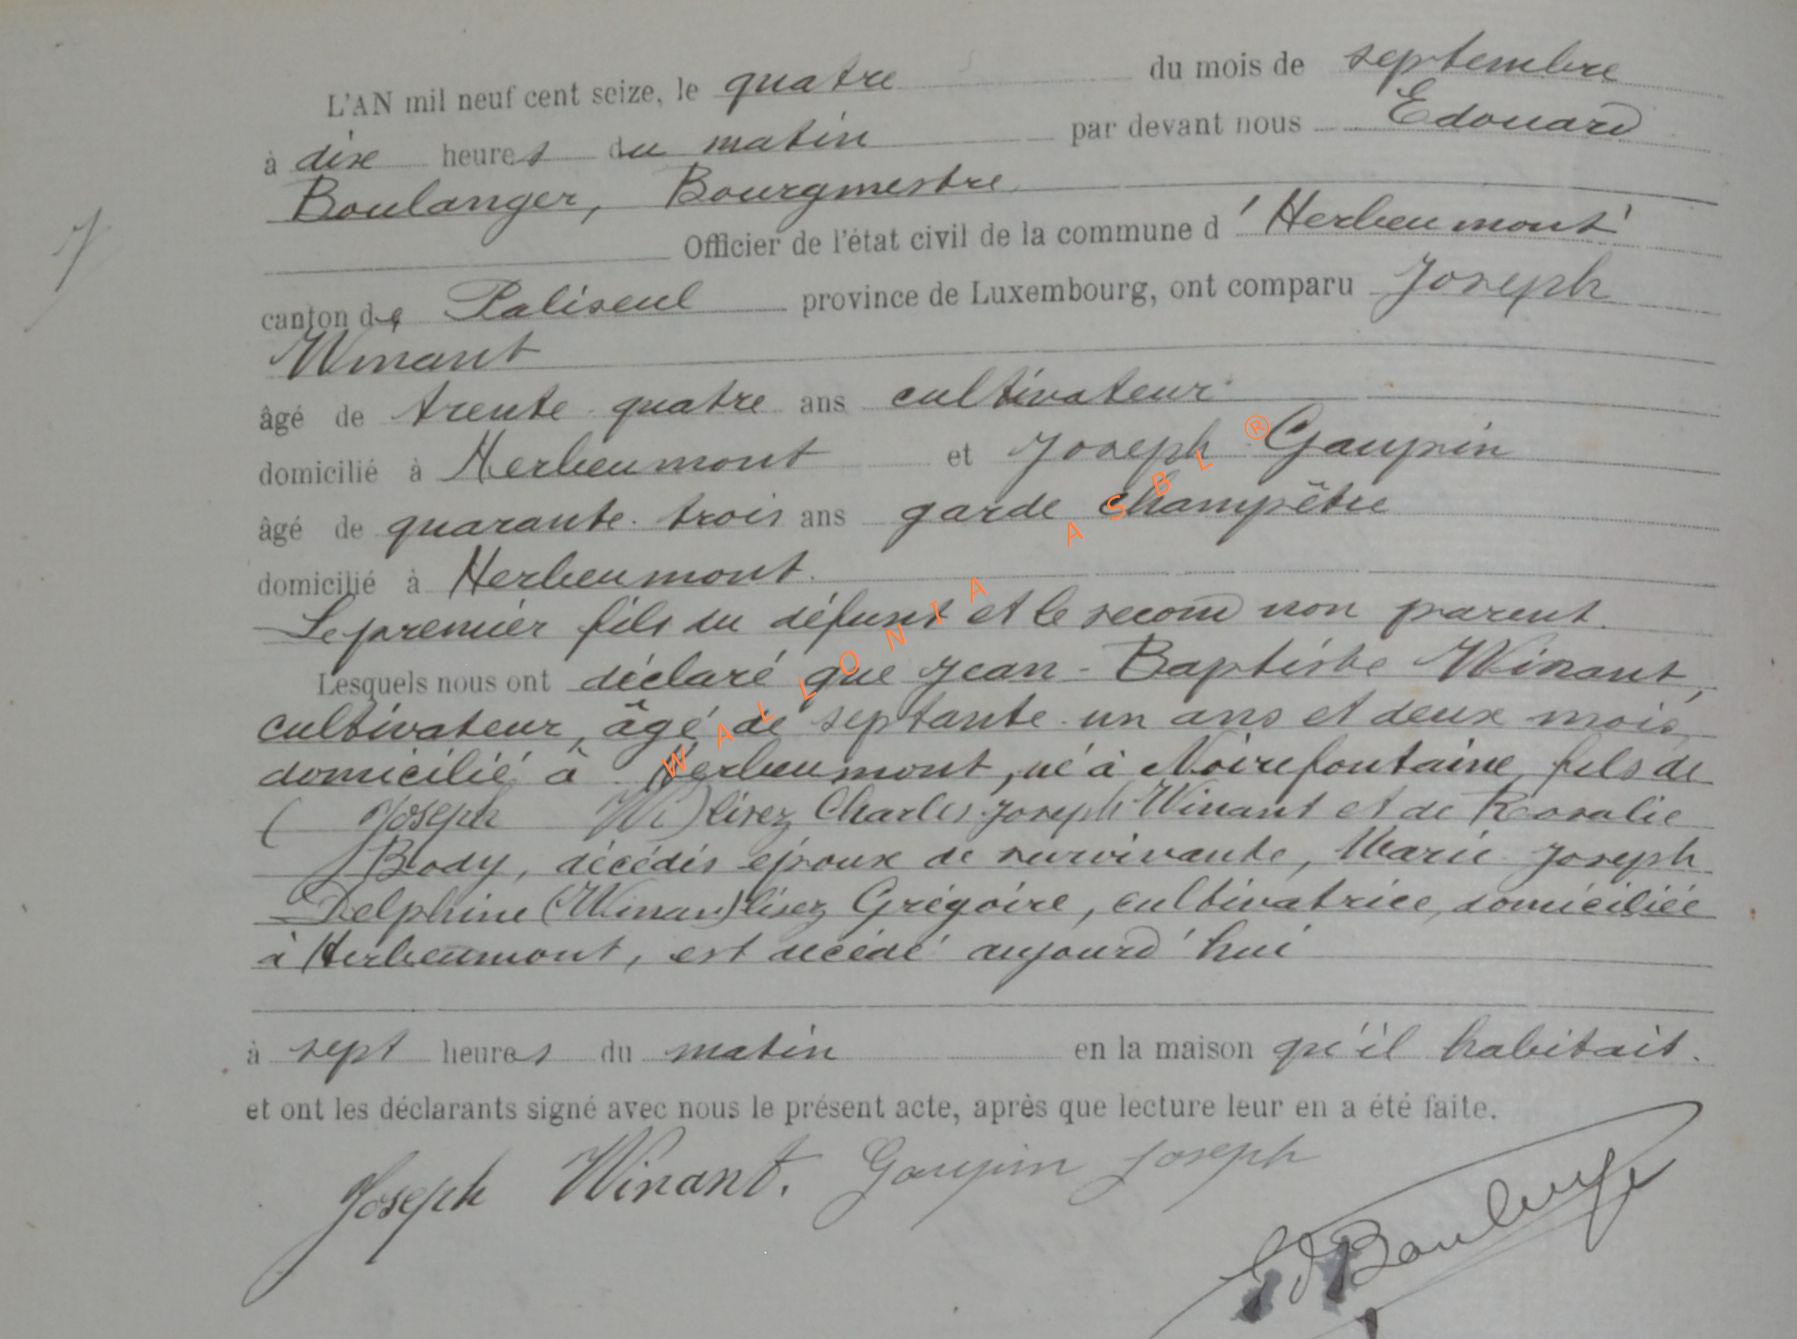 L'AN mil neuf cent seize, le quatre du mois de septembre
à dix heures du matin par devant nous Edouard
Boulanger, Bourgmestre
Officier de l'état civil de la commune d'Herbeumont
canton de Paliseul province de Luxembourg, ont comparu Joseph
Winant
âgé de trente quatre ans cultivateur
domicilié à Herbeumont et Joseph Goupin
âgé de quarante trois ans garde champêtre
domicilié à Herbeumont.
Le premier fils du défunt et le second non parent.
Lesquels nous ont déclaré que Jean-Baptiste Winant,
cultivateur, âgé de septante un ans et deux mois,
domicilié à Herbeumont, né à Noirefontaine, fils de
( Joseph Wi) lisez Charles Joseph Winant et de Rosalie
Body, décédés époux de survivante, Marie Joseph
Delphine (Winan) lisez Grégoire, cultivatrice, domiciliée
à Herbeumont, est décédé aujourd'hui
à sept heures du matin en la maison qu'il habitait.
et ont les déclarants signé avec nous le présent acte, après que lecture leur en a été faite.
Joseph Winant. Goupin Joseph
Ed Boulanger
WALLONIA ASBL ®